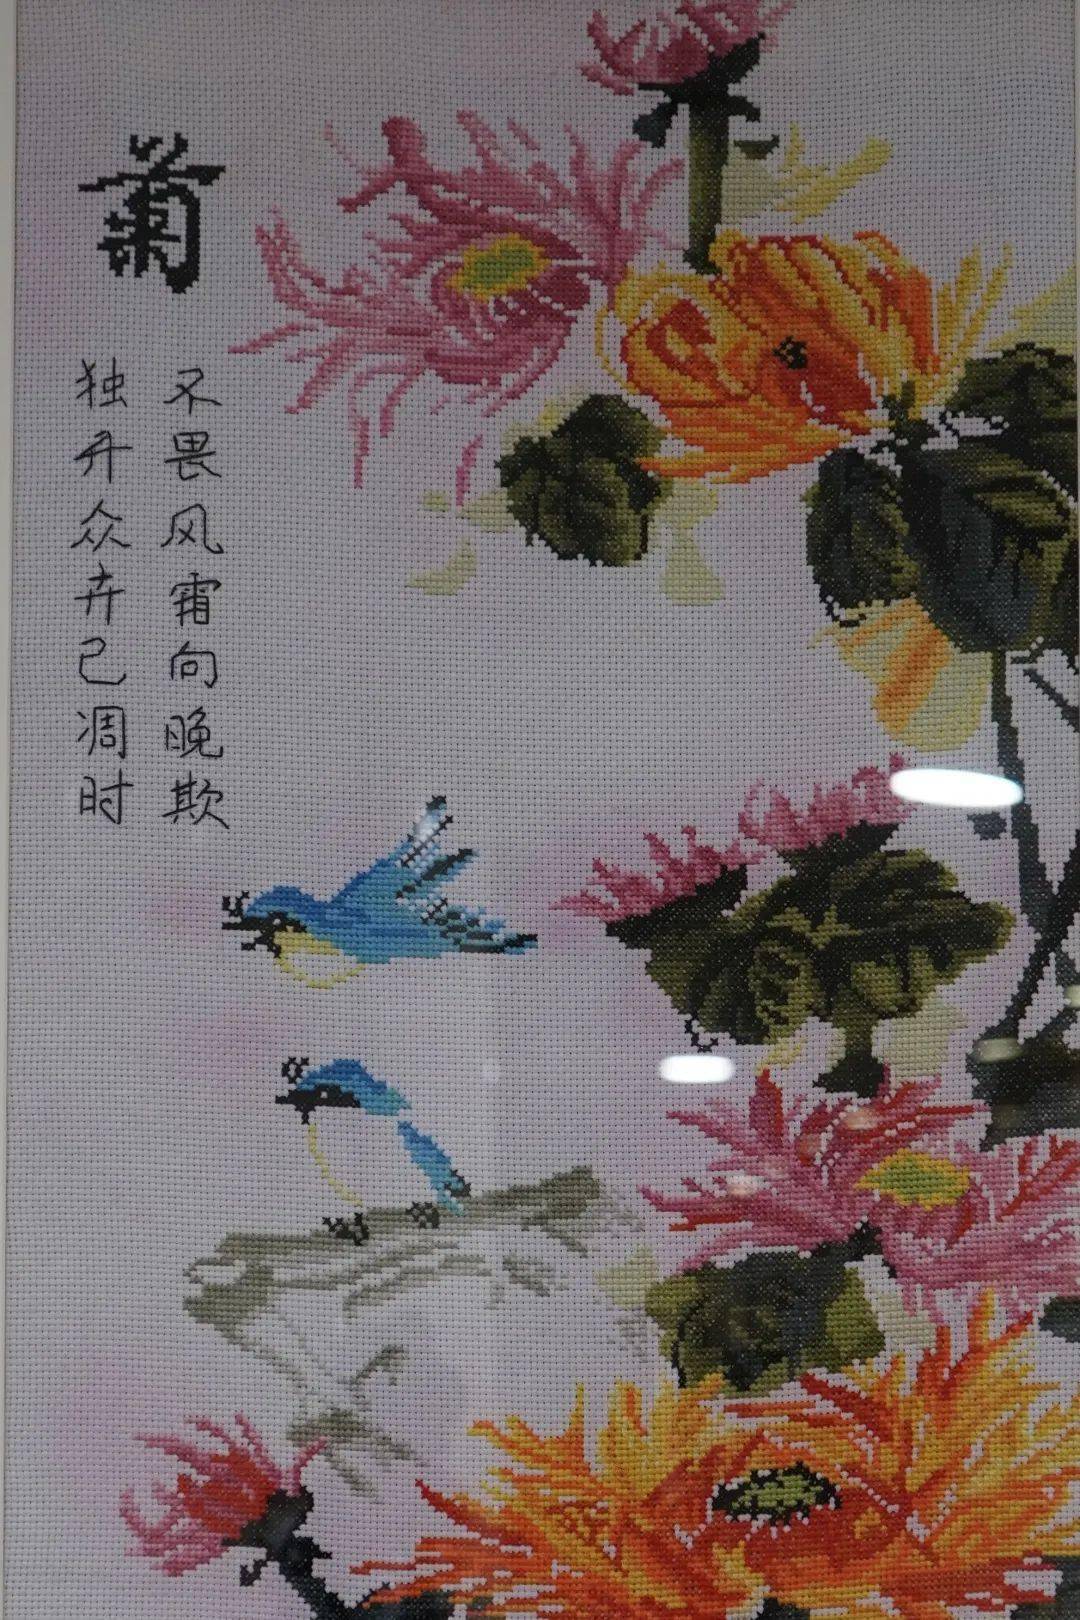 菊
不畏风霜向晚欺
独开众卉已凋时